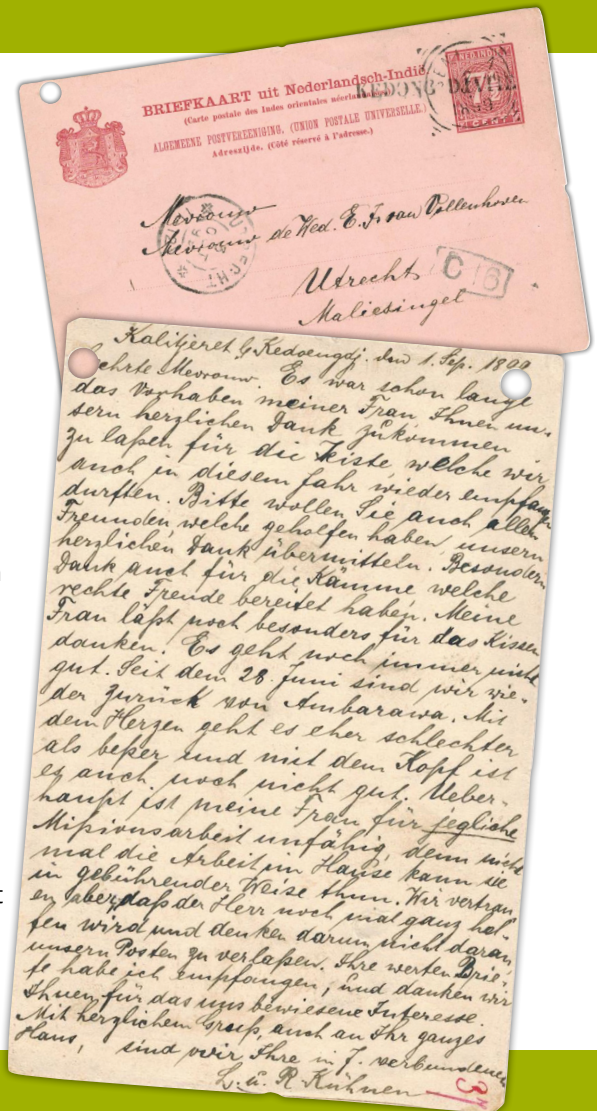 BRIEFKAART uit Nederlandsch-Indië
(Carte postale des Indes orientales néerlandaises.)
ALGEMEENE POSTVEREENIGING. (UNION POSTALE UNIVERSELLE.)
Adreszijde. (Côté réservé à l'adresse.)
NED. INDIE
KEDONG-DJATI
CENT
UTRECHT
Mevrouw
Mevrouw de Wed. E. F. van Vollenhoven
Utrecht
Maliesingel
C 6
Kalitjeret b/Kedoengdj. den 1. Sep.
Geehrte Mevrouw. Es war schon lange
das Vorhaben meiner Frau Ihnen un-
sern herzlichen Dank zukommen
zu laßen für die Kiste, welche wir
auch in diesem Jahr wieder empfangen
durften. Bitte wollen Sie auch allen
Freunden, welche geholfen haben, unsern
herzlichen Dank übermitteln. Besondern
Dank auch für die Kämme welche
rechte Freude bereitet haben. Meine
Frau läßt noch besonders für das Kissen
danken. Es geht noch immer nicht
gut. Seit dem 28. Juni sind wir wie-
der zurück von Ambarawa. Mit
dem Herzen geht es eher schlechter
als beßer und mit dem Kopf ist
es auch noch nicht gut. Ueber-
haupt ist meine Frau für jegliche
Mißionsarbeit unfähig, denn nicht
mal die Arbeit im Hause kann sie
in gebührender Weise thun. Wir vertrau-
en aber, daß der Herr noch mal ganz hel-
fen wird und denken darum nicht daran,
unsern Posten zu verlaßen. Ihre werten Brie-
fe habe ich empfangen, und danken wir
Ihnen für das uns bewiesene Interesse.
Mit herzlichem Gruß, auch an Ihr ganzes
Haus, sind wir Ihre in J. verbundenen
L. u. R. Kühnen
3